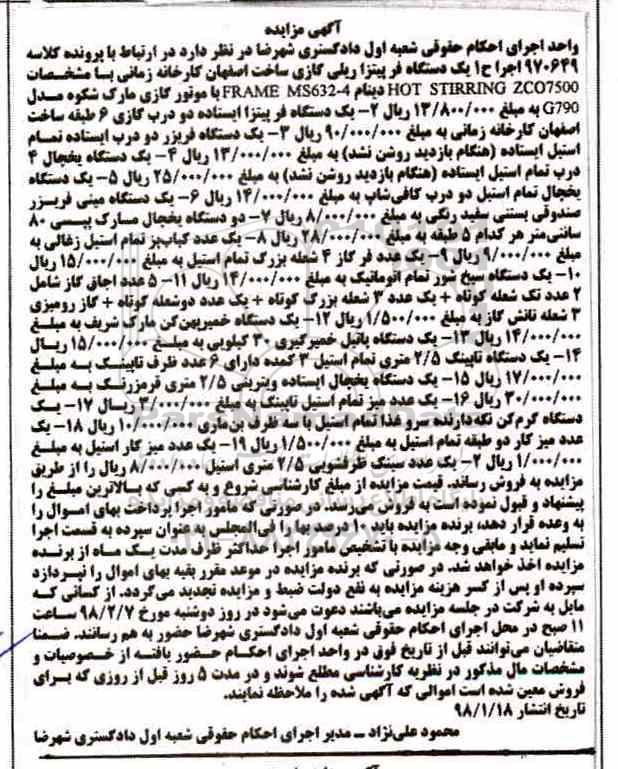 آگهی مزایده
واحد اجرای احکام حقوقی شعبه اول دادگستری شهرضا در نظر دارد در ارتباط با پرونده کلاسه
۹۷۰۶۴۹ اجرا ح۱ یک دستگاه فر پیتزا ریلی گازی ساخت اصفهان کارخانه زمانی بـا مشخصات
HOT STIRRING ZCO7500 دینام FRAME MS632-4 با موتور گازی مارک شکوه مدل
G790 به مبلغ ۱۳/۸۰۰/۰۰۰ ریال ۲- یک دستگاه فر پیتزا ایستاده دو درب گازی ۶ طبقه ساخت
اصفهان کارخانه زمانی به مبلغ ۹۰/۰۰۰/۰۰۰ ریال ۳- یک دستگاه فریزر دو درب ایستاده تمـام
استیل ایستاده (هنگام بازدید روشن نشد) به مبلغ ۱۳/۰۰۰/۰۰۰ ریال ۴- یک دستگاه یخچال ۴
درب تمام استیل ایستاده (هنگام بازدید روشن نشد) به مبلغ ۲۵/۰۰۰/۰۰۰ ریال ۵- یک دستگاه
یخچال تمام استیل دو درب کافی‌شاپ به مبلغ ۱۴/۰۰۰/۰۰۰ ریال ۶- یک دستگاه مینی فریـزر
صندوقی بستنی سفید رنگی به مبلغ ۸/۰۰۰/۰۰۰ ریال ۷- دو دستگاه یخچال مـارک پپـسی ۸۰
سانتی‌متر هر کدام ۵ طبقه به مبلغ ۲۸/۰۰۰/۰۰۰ ریال ۸- یک عدد کباب‌پز تمام استیل زغالی به
مبلغ ۹/۰۰۰/۰۰۰ ریال ۹- یک عدد فر گاز ۴ شعله بزرگ تمام استیل به مبلغ ۱۵/۰۰۰/۰۰۰ ریال
۱۰- یک دستگاه سیخ شور تمام اتوماتیک به مبلغ ۱۴/۰۰۰/۰۰۰ ریال ۱۱- ۵ عدد اجاق گاز شامل
۲ عدد تک شعله کوتاه + یک عدد ۳ شعله بزرگ کوتاه + یک عدد دوشعله کوتاه + گاز رومیزی
۳ شعله تانش گاز به مبلغ ۱/۵۰۰/۰۰۰ ریال ۱۲- یک دستگاه خمیرپهن‌کن مارک شریف به مبلـغ
۱۴/۰۰۰/۰۰۰ ریال ۱۳- یک دستگاه پاتیل خمیرگیری ۳۰ کیلویی به مبلـغ ۱۵/۰۰۰/۰۰۰ ریـال
۱۴- یک دستگاه تاپینگ ۲/۵ متری تمام استیل ۳ کمده دارای ۶ عدد ظرف تاپینـگ بـه مبلـغ
۱۷/۰۰۰/۰۰۰ ریال ۱۵- یک دستگاه یخچال ایستاده ویترینی ۲/۵ متری قرمزرنـگ بـه مبلـغ
۳۰/۰۰۰/۰۰۰ ریال ۱۶- یک عدد میز تمام استیل تاپینگ به مبلغ ۳/۰۰۰/۰۰۰ ریـال ۱۷- یـک
دستگاه گرم‌کن نگه‌دارنده سرو غذا تمام استیل با سه ظرف بن‌ماری ۱۰/۰۰۰/۰۰۰ ریال ۱۸- یک
عدد میز کار دو طبقه تمام استیل به مبلغ ۱/۵۰۰/۰۰۰ ریال ۱۹- یک عدد میز کار استیل به مبلـغ
۱/۰۰۰/۰۰۰ ریال ۲- یک عدد سینک ظرفشویی ۲/۵ متری استیل ۸/۰۰۰/۰۰۰ ریال را از طریق
مزایده به فروش رساند. قیمت مزایده از مبلغ کارشناسی شروع و به کسی که بـالاترین مبلـغ را
پیشنهاد و قبول نموده است به فروش می‌رسد. در صورتی که مامور اجرا پرداخت بهای اموال را
به وعده قرار دهد، برنده مزایده باید ۱۰ درصد بها را فی‌المجلس به عنوان سپرده به قسمت اجرا
تسلیم نماید و مابقی وجه مزایده با تشخیص مامور اجرا حداکثر ظرف مدت یـک مـاه از برنـده
مزایده اخذ خواهد شد. در صورتی که برنده مزایده در موعد مقرر بقیه بهای اموال را نپـردازد
سپرده او پس از کسر هزینه مزایده به نفع دولت ضبط و مزایده تجدید می‌گردد. از کسانی کـه
مایل به شرکت در جلسه مزایده می‌باشند دعوت می‌شود در روز دوشنبه مورخ ۹۸/۲/۷ سـاعت
۱۱ صبح در محل اجرای احکام حقوقی شعبه اول دادگستری شهرضا حضور به هم رسانند. ضـمنا
متقاضیان می‌توانند قبل از تاریخ فوق در واحد اجرای احکـام حـضور یافتـه از خـصوصیات و
مشخصات مال مذکور در نظریه کارشناسی مطلع شوند و در مدت ۵ روز قبل از روزی که بـرای
فروش معین شده است اموالی که آگهی شده را ملاحظه نمایند.
تاریخ انتشار ۹۸/۱/۱۸
محمود علی‌نژاد – مدیر اجرای احکام حقوقی شعبه اول دادگستری شهرضا